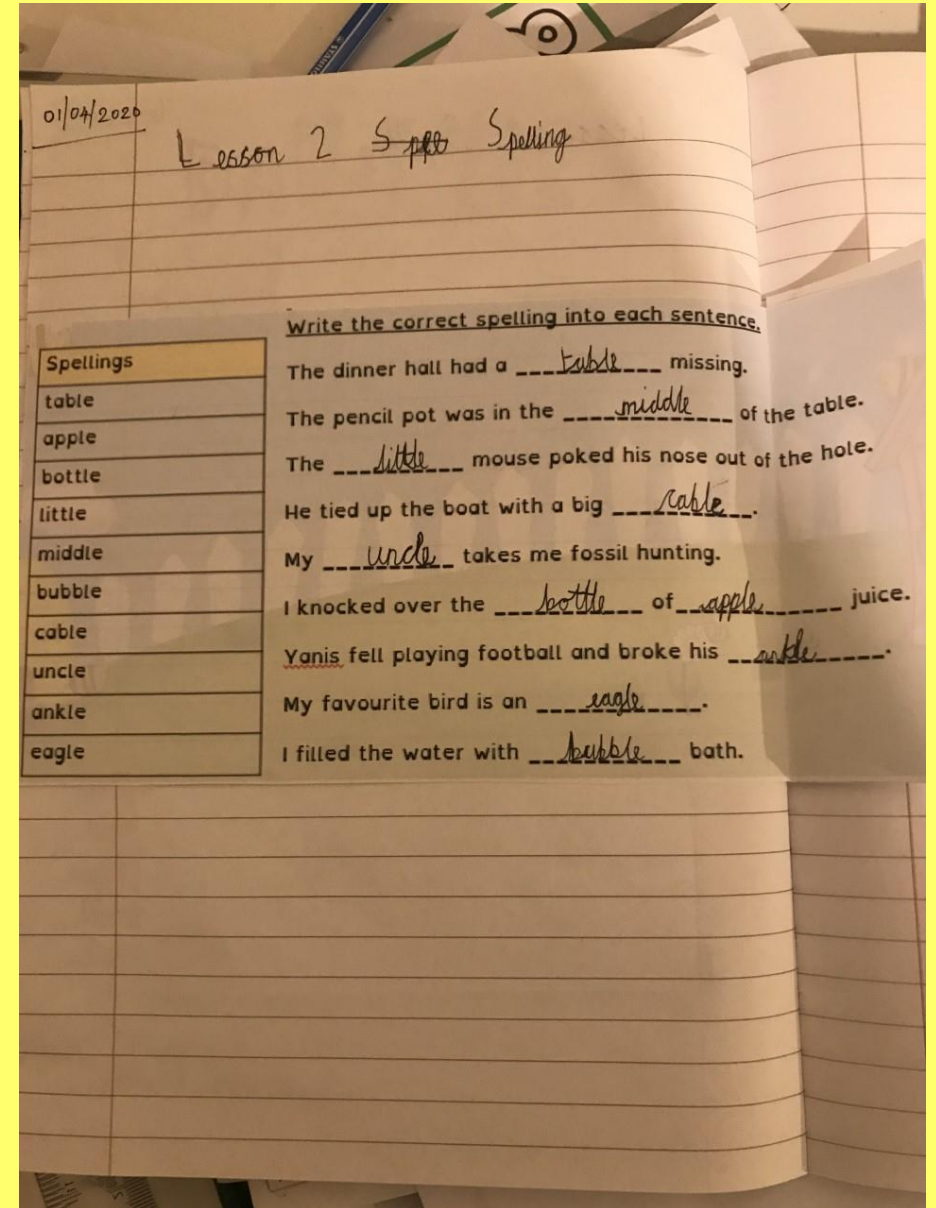 01/04/2020
Lesson 2 Spee Spelling
Write the correct spelling into each sentence.
Spellings
table
apple
bottle
little
middle
bubble
cable
uncle
ankle
eagle
The dinner hall had a ___table___ missing.
The pencil pot was in the ___middle___ of the table.
The ___little___ mouse poked his nose out of the hole.
He tied up the boat with a big ___cable___.
My ___uncle___ takes me fossil hunting.
I knocked over the ___bottle___ of ___apple___ juice.
Yanis fell playing football and broke his ___ankle___.
My favourite bird is an ___eagle___.
I filled the water with ___bubble___ bath.